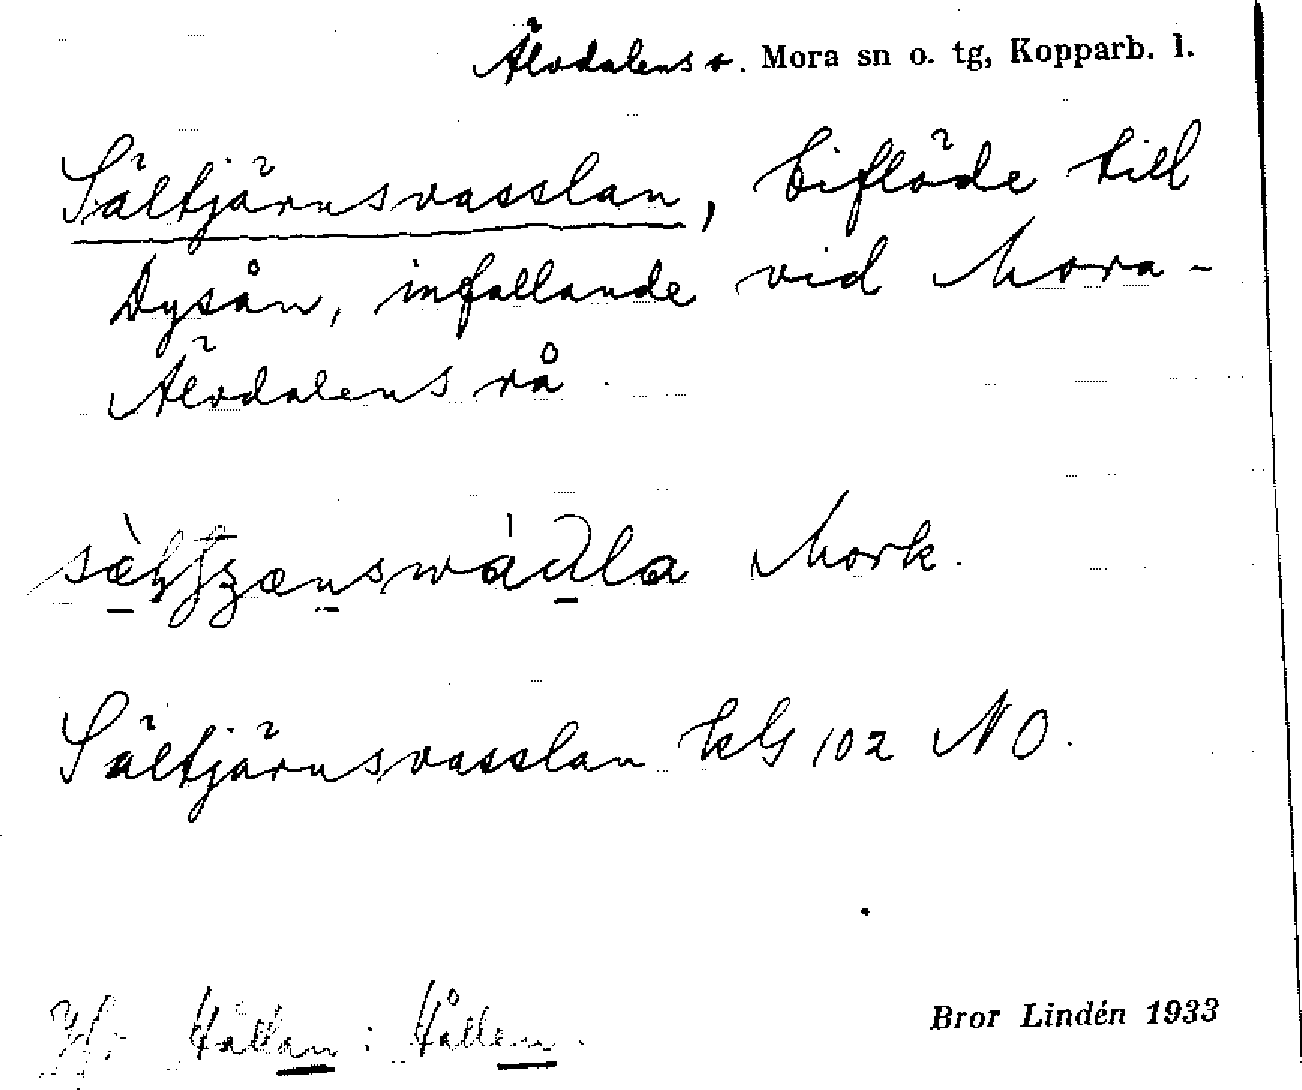 Älvdalens o. Mora sn o. tg, Kopparb. l.
Sältjärnsvasslan, biflöde till
Dysån, infallande vid Mora-
Älvdalens rå.
Mork.
Sältjärnsvasslan kbl 102 NO.
Jfr Hållan : Hållen.
Bror Lindén 1933